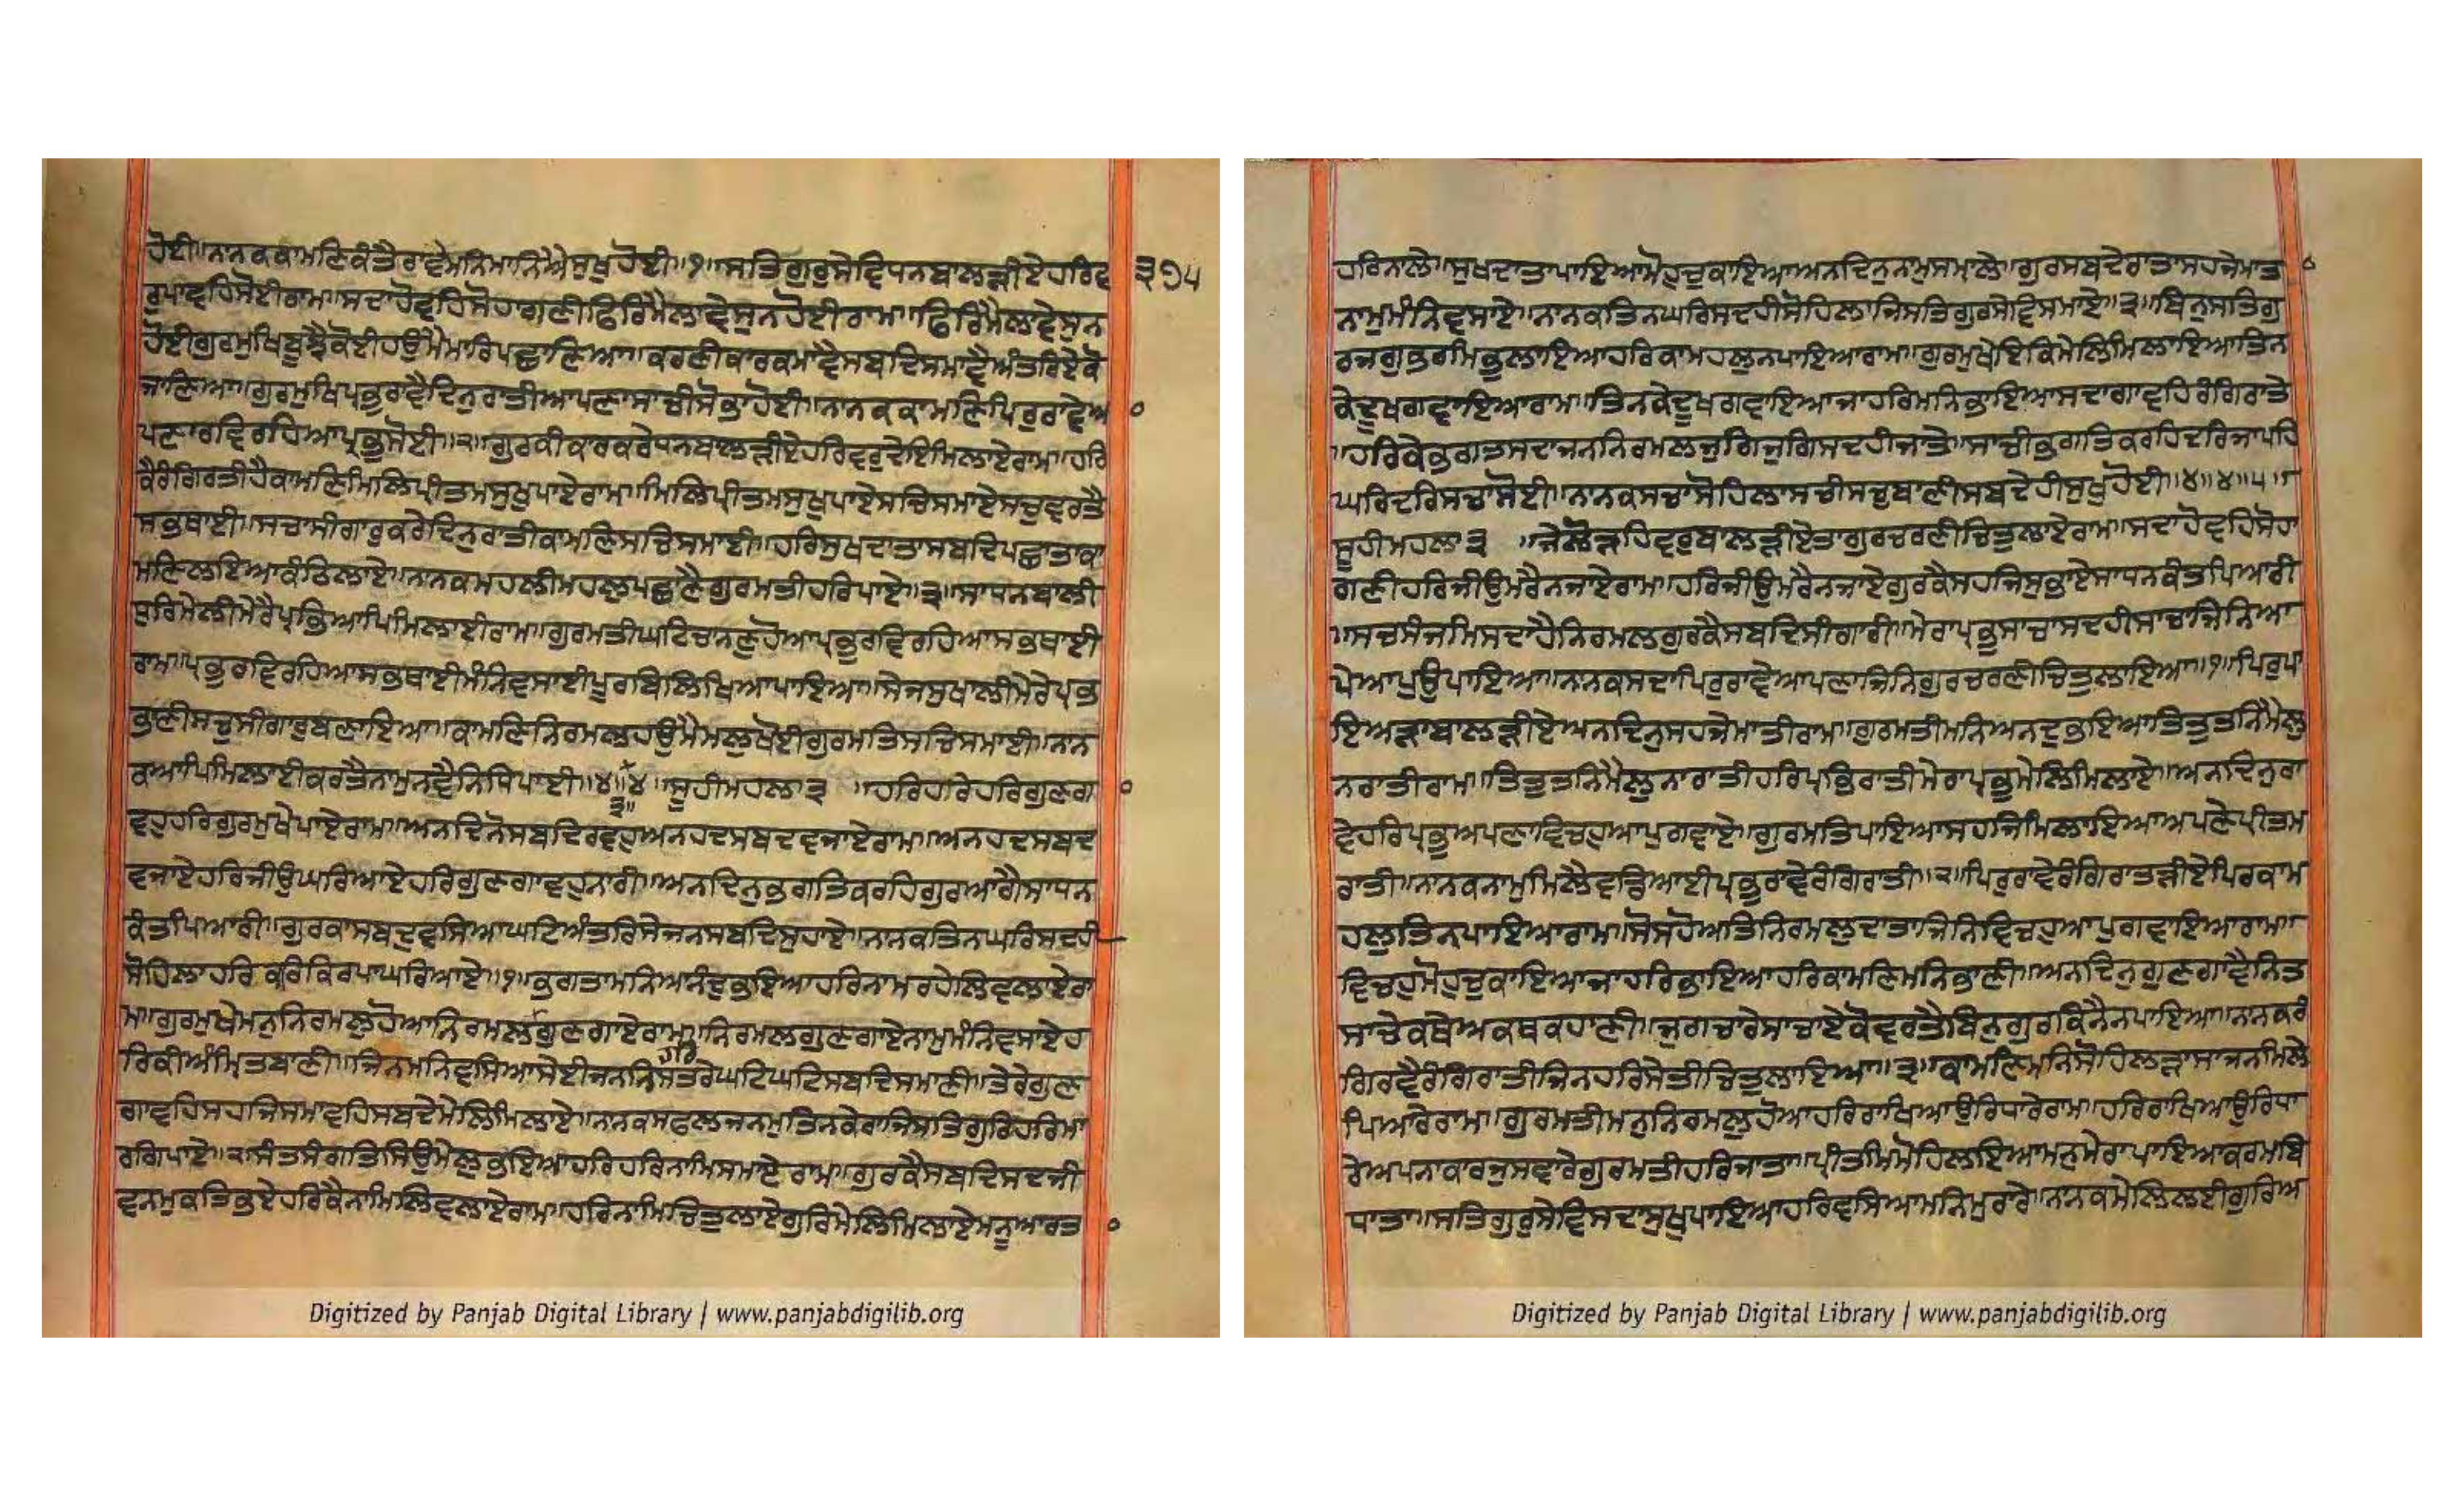 ਹੋਈ॥ਨਾਨਕਕਾਮਣਿਕੰਤੈਰਾਵੇਮਨਿਮਾਨਿਐਸੁਖੁਹੋਈ॥੧॥ਸਤਿਗੁਰੁਸੇਵਿਧਨਬਾਲੜੀਏਹਰਿਵ
੩੭੫
ਰੁਪਾਵਹਿਸੋਈਰਾਮ॥ਸਦਾਹੋਵਹਿਸੋਹਾਗਣੀਫਿਰਿਮੈਲਾਵੇਸੁਨਹੋਈਰਾਮ॥ਫਿਰਿਮੈਲਾਵੇਸੁਨ
ਹੋਈਗੁਰਮੁਖਿਬੂਝੈਕੋਈਹਉਮੈਮਾਰਿਪਛਾਣਿਆ॥ਕਰਣੀਕਾਰਕਮਾਵੈਸਬਦਿਸਮਾਵੈਅੰਤਰਿਏਕੋ
ਜਾਣਿਆ॥ਗੁਰਮੁਖਿਪ੍ਰਭੁਰਾਵੈਦਿਨੁਰਾਤੀਆਪਣਾਸਾਚੀਸੋਭਾਹੋਈ॥ਨਾਨਕਕਾਮਣਿਪਿਰੁਰਾਵੇਆ
ਪਣਾਰਵਿਰਹਿਆਪ੍ਰਭੁਸੋਈ॥੨॥ਗੁਰਕੀਕਾਰਕਰੇਧਨਬਾਲੜੀਏਹਰਿਵਰੁਦੇਇਮਿਲਾਏਰਾਮ॥ਹਰਿ
ਕੈਰੰਗਿਰਤੀਹੈਕਾਮਣਿਮਿਲਿਪ੍ਰੀਤਮਸੁਖੁਪਾਏਰਾਮ॥ਮਿਲਿਪ੍ਰੀਤਮਸੁਖੁਪਾਏਸਚਿਸਮਾਏਸਚੁਵਰਤੈ
ਸਭਥਾਈ॥ਸਚਾਸੀਗਾਰੁਕਰੇਦਿਨੁਰਾਤੀਕਾਮਣਿਸਚਿਸਮਾਈ॥ਹਰਿਸੁਖਦਾਤਾਸਬਦਿਪਛਾਤਾਕਾ
ਮਣਿਲਇਆਕੰਠਿਲਾਏ॥ਨਾਨਕਮਹਲੀਮਹਲੁਪਛਾਣੈਗੁਰਮਤੀਹਰਿਪਾਏ॥੩॥ਸਾਧਨਬਾਲੀ
ਧੁਰਿਮੇਲੀਮੇਰੈਪ੍ਰਭਿਆਪਿਮਿਲਾਈਰਾਮ॥ਗੁਰਮਤੀਘਟਿਚਾਨਣੁਹੋਆਪ੍ਰਭੁਰਵਿਰਹਿਆਸਭਥਾਈ
ਰਾਮ॥ਪ੍ਰਭੁਰਵਿਰਹਿਆਸਭਥਾਈਮੰਨਿਵਸਾਈਪੂਰਬਿਲਿਖਿਆਪਾਇਆ॥ਸੇਜਸੁਖਾਲੀਮੇਰੇਪ੍ਰਭ
ਭਾਣੀਸਚੁਸੀਗਾਰੁਬਣਾਇਆ॥ਕਾਮਣਿਨਿਰਮਲਹਉਮੈਮਲੁਖੋਈਗੁਰਮਤਿਸਚਿਸਮਾਈ॥ਨਾਨ
ਕਆਪਿਮਿਲਾਈਕਰਤੈਨਾਮੁਨਵੈਨਿਧਿਪਾਈ॥੪॥੪ ਸੂਹੀਮਹਲਾ੩ ॥ਹਰਿਹਰੇਹਰਿਗੁਣਗਾ
੩॥
ਵਹੁਹਰਿਗੁਰਮੁਖੇਪਾਏਰਾਮ॥ਅਨਦਿਨੋਸਬਦਿਰਵਹੁਅਨਹਦਸਬਦਵਜਾਏਰਾਮ॥ਅਨਹਦਸਬਦ
ਵਜਾਏਹਰਿਜੀਉਘਰਿਆਏਹਰਿਗੁਣਗਾਵਹੁਨਾਰੀ॥ਅਨਦਿਨੁਭਗਤਿਕਰਹਿਗੁਰਆਗੈਸਾਧਨ
ਕੰਤਪਿਆਰੀ॥ਗੁਰਕਾਸਬਦੁਵਸਿਆਘਟਿਅੰਤਰਿਸੇਜਨਸਬਦਿਸੁਹਾਏ॥ਨਾਨਕਤਿਨਘਰਿਸਦਹੀ
ਸੋਹਿਲਾਹਰਿਕਰਿਕਿਰਪਾਘਰਿਆਏ॥੧॥ਭਗਤਾਮਨਿਆਨੰਦੁਭਇਆਹਰਿਨਾਮਰਹੇਲਿਵਲਾਏਰਾ
ਮ॥ਗੁਰਮੁਖੇਮਨੁਨਿਰਮਲੁਹੋਆਨਿਰਮਲਗੁਣਗਾਏਰਾਮ॥ਨਿਰਮਲਗੁਣਗਾਏਨਾਮੁਮੰਨਿਵਸਾਏਹ
ਹਰਿ
ਰਿਕੀਅੰਮ੍ਰਿਤਬਾਣੀ॥ਜਿਨਮਨਿਵਸਿਆਸੇਈਜਨਨਿਸਤਰੇਘਟਿਘਟਿਸਬਦਿਸਮਾਣੀ॥ਤੇਰੇਗੁਣ
ਗਾਵਹਿਸਹਜਿਸਮਾਵਹਿਸਬਦੇਮੇਲਿਮਿਲਾਏ॥ਨਾਨਕਸਫਲਜਨਮੁਤਿਨਕੇਰਾਜਿਸਤਿਗੁਰਿਹਰਿਮਾ
ਰਗਿਪਾਏ॥੨॥ਸੰਤਸੰਗਤਿਸਿਉਮੇਲੁਭਇਆਹਰਿਹਰਿਨਾਮਿਸਮਾਏਰਾਮ॥ਗੁਰਕੈਸਬਦਿਸਦਜੀ
ਵਨਮੁਕਤਿਭਏਹਰਿਕੈਨਾਮਿਲਿਵਲਾਏਰਾਮ॥ਹਰਿਨਾਮਿਚਿਤੁਲਾਏਗੁਰਿਮੇਲਿਮਿਲਾਏਮਨੂਆਰਤਾ
Digitized by Panjab Digital Library | www.panjabdigilib.org
ਹਰਿਨਾਲੇ॥ਸੁਖਦਾਤਾਪਾਇਆਮੋਹੁਚੁਕਾਇਆਅਨਦਿਨੁਨਾਮੁਸਮਾਲੇ॥ਗੁਰਸਬਦੇਰਾਤਾਸਹਜੇਮਾਤਾ
ਨਾਮੁਮੰਨਿਵਸਾਏ॥ਨਾਨਕਤਿਨਘਰਿਸਦਹੀਸੋਹਿਲਾਜਿਸਤਿਗੁਰਸੇਵਿਸਮਾਏ॥੩॥ਬਿਨੁਸਤਿਗੁ
ਰਜਗੁਭਰਮਿਭੁਲਾਇਆਹਰਿਕਾਮਹਲੁਨਪਾਇਆਰਾਮ॥ਗੁਰਮੁਖੇਇਕਿਮੇਲਿਮਿਲਾਇਆਤਿਨ
ਕੇਦੂਖਗਵਾਇਆਰਾਮ॥ਤਿਨਕੇਦੂਖਗਵਾਇਆਜਾਹਰਿਮਨਿਭਾਇਆਸਦਾਗਾਵਹਿਰੰਗਿਰਾਤੇ
॥ਹਰਿਕੇਭਗਤਸਦਾਜਨਨਿਰਮਲਜੁਗਿਜੁਗਿਸਦਹੀਜਾਤੇ॥ਸਾਚੀਭਗਤਿਕਰਹਿਦਰਿਜਾਪਹਿ
ਘਰਿਦਰਿਸਚਾਸੋਈ॥ਨਾਨਕਸਚਾਸੋਹਿਲਾਸਚੀਸਚੁਬਾਣੀਸਬਦੇਹੀਸੁਖੁਹੋਈ॥੪॥੪॥੫॥
ਸੂਹੀਮਹਲਾ੩ ॥ਜੇਲੋੜਹਿਵਰੁਬਾਲੜੀਏਤਾਗੁਰਚਰਣੀਚਿਤੁਲਾਏਰਾਮ॥ਸਦਾਹੋਵਹਿਸੋਹਾ
ਗਣੀਹਰਿਜੀਉਮਰੈਨਜਾਏਰਾਮ॥ਹਰਿਜੀਉਮਰੈਨਜਾਏਗੁਰਕੈਸਹਜਿਸੁਭਾਏਸਾਧਨਕੰਤਪਿਆਰੀ
॥ਸਚਸੰਜਮਿਸਦਾਹੈਨਿਰਮਲਗੁਰਕੈਸਬਦਿਸੀਗਾਰੀ॥ਮੇਰਾਪ੍ਰਭੁਸਾਚਾਸਦਹੀਸਾਚਾਜਿਨਿਆ
ਪੇਆਪੁਉਪਾਇਆ॥ਨਾਨਕਸਦਾਪਿਰੁਰਾਵੇਆਪਣਾਜਿਨਿਗੁਰਚਰਣੀਚਿਤੁਲਾਇਆ॥੧॥ਪਿਰੁਪਾ
ਇਅੜਾਬਾਲੜੀਏਅਨਦਿਨੁਸਹਜੇਮਾਤੀਰਾਮ॥ਗੁਰਮਤੀਮਨਿਅਨਦੁਭਇਆਤਿਤੁਤਨਿਮੈਲੁ
ਨਰਾਤੀਰਾਮ॥ਤਿਤੁਤਨਿਮੈਲੁਨਾਰਾਤੀਹਰਿਪ੍ਰਭਿਰਾਤੀਮੇਰਾਪ੍ਰਭੁਮੇਲਿਮਿਲਾਏ॥ਅਨਦਿਨੁਰਾ
ਵੇਹਰਿਪ੍ਰਭੁਅਪਣਾਵਿਚਹੁਆਪੁਗਵਾਏ॥ਗੁਰਮਤਿਪਾਇਆਸਹਜਿਮਿਲਾਇਆਅਪਣੇਪ੍ਰੀਤਮ
ਰਾਤੀ॥ਨਾਨਕਨਾਮੁਮਿਲੈਵਡਿਆਈਪ੍ਰਭੁਰਾਵੇਰੰਗਿਰਾਤੀ॥੨॥ਪਿਰੁਰਾਵੇਰੰਗਿਰਾਤੜੀਏਪਿਰਕਾਮ
ਹਲੁਤਿਨਪਾਇਆਰਾਮ॥ਸੋਸਹੋਅਤਿਨਿਰਮਲੁਦਾਤਾਜਿਨਿਵਿਚਹੁਆਪੁਗਵਾਇਆਰਾਮ॥
ਵਿਚਹੁਮੋਹੁਚੁਕਾਇਆਜਾਹਰਿਭਾਇਆਹਰਿਕਾਮਣਿਮਨਿਭਾਣੀ॥ਅਨਦਿਨੁਗੁਣਗਾਵੈਨਿਤ
ਸਾਚੇਕਥੇਅਕਥਕਹਾਣੀ॥ਜੁਗਚਾਰੇਸਾਚਾਏਕੋਵਰਤੈਬਿਨੁਗੁਰਕਿਨੈਨਪਾਇਆ॥ਨਾਨਕਰੰ
ਗਿਰਵੈਰੰਗਿਰਾਤੀਜਿਨਹਰਿਸੇਤੀਚਿਤੁਲਾਇਆ॥੩॥ਕਾਮਣਿਮਨਿਸੋਹਿਲੜਾਸਾਜਨਮਿਲੇ
ਪਿਆਰੇਰਾਮ॥ਗੁਰਮਤੀਮਨੁਨਿਰਮਲੁਹੋਆਹਰਿਰਾਖਿਆਉਰਿਧਾਰੇਰਾਮ॥ਹਰਿਰਾਖਿਆਉਰਿਧਾ
ਰੇਅਪਨਾਕਾਰਜੁਸਵਾਰੇਗੁਰਮਤੀਹਰਿਜਾਤਾ॥ਪ੍ਰੀਤਮਿਮੋਹਿਲਇਆਮਨੁਮੇਰਾਪਾਇਆਕਰਮਬਿ
ਧਾਤਾ॥ਸਤਿਗੁਰੁਸੇਵਿਸਦਾਸੁਖੁਪਾਇਆਹਰਿਵਸਿਆਮਨਿਮੁਰਾਰੇ॥ਨਾਨਕਮੇਲਿਲਈਗੁਰਿਅ
Digitized by Panjab Digital Library | www.panjabdigilib.org